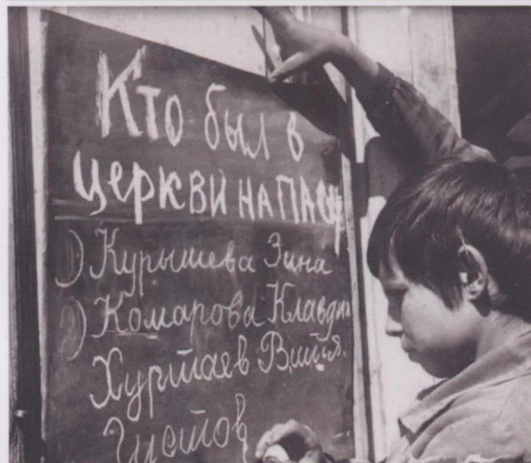 Кто был в
церкви на пасху
1) Курышева Зина
) Комарова Клавдия
Хуртаев Витя.